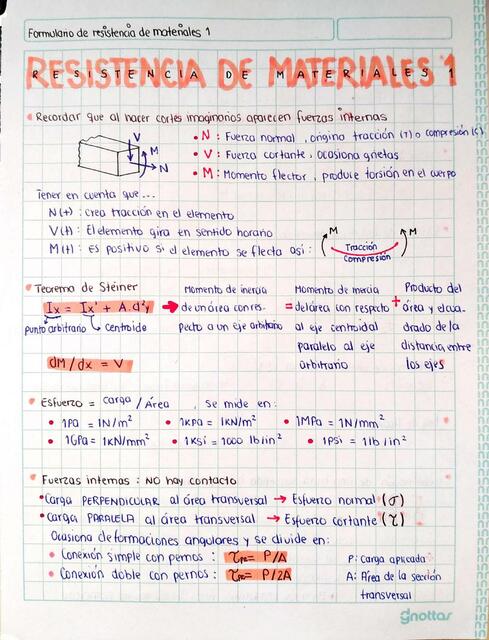 Formulario de resistencia de materiales 1
RESISTENCIA DE MATERIALES 1
Recordar que al hacer cortes imaginarios aparecen fuerzas internas
V
M
N
• N : Fuerza normal, origina tracción (T) o compresión (C)
• V : Fuerza cortante, ocasiona grietas
• M : Momento flector, produce torsión en el cuerpo
Tener en cuenta que...
N(+) : crea tracción en el elemento
V(+) : El elemento gira en sentido horario
M(+) : Es positivo si el elemento se flecta así :
M
M
Tracción
Compresión
Teorema de Steiner
Ix = Ix' + A.d²y
punto arbitrario
Centroide
→ Momento de inercia
de un área con res-
pecto a un eje arbitrario
= Momento de inercia
del área con respecto
al eje centroidal
paralelo al eje
arbitrario
+ Producto del
área y el cua-
drado de la
distancia entre
los ejes
dM/dx = V
Esfuerzo = Carga / Área , Se mide en :
• 1Pa = 1N/m² • 1KPa = 1KN/m² • 1MPa = 1N/mm²
• 1GPa = 1KN/mm² • 1Ksi = 1000 lb/in² • 1Psi = 1lb/in²
Fuerzas internas : NO hay contacto
• Carga PERPENDICULAR al área transversal → Esfuerzo normal (σ)
• Carga PARALELA al área transversal → Esfuerzo cortante (τ)
Ocasiona deformaciones angulares y se divide en :
• Conexión simple con pernos : = P/A
• Conexión doble con pernos : = P/2A
P : Carga aplicada
A : Área de la sección
transversal
gnottas